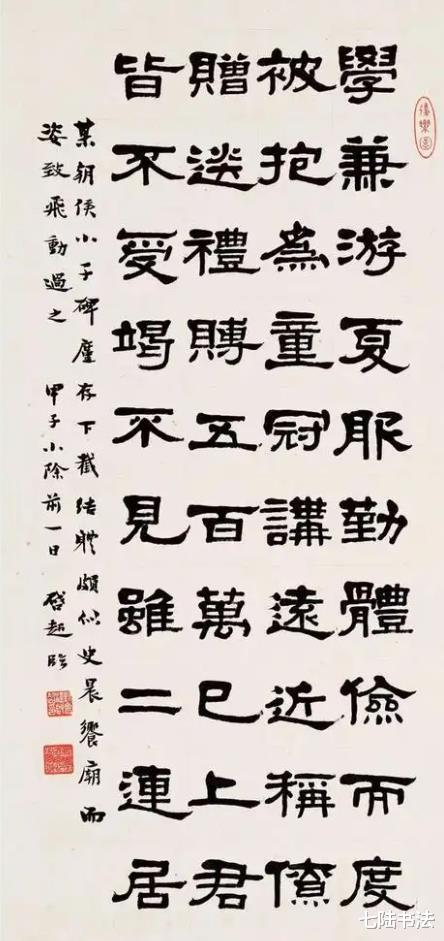 學兼游夏服勤體儉而度
被抱爲童冠講遠近稱僚
贈送禮賻五百萬已上君
皆不受竭不見雖二連居
某朝侯小子碑廑存下截結體頗似史晨饗廟而
姿致飛動過之 甲子小除前一日 啓超臨
七陆书法